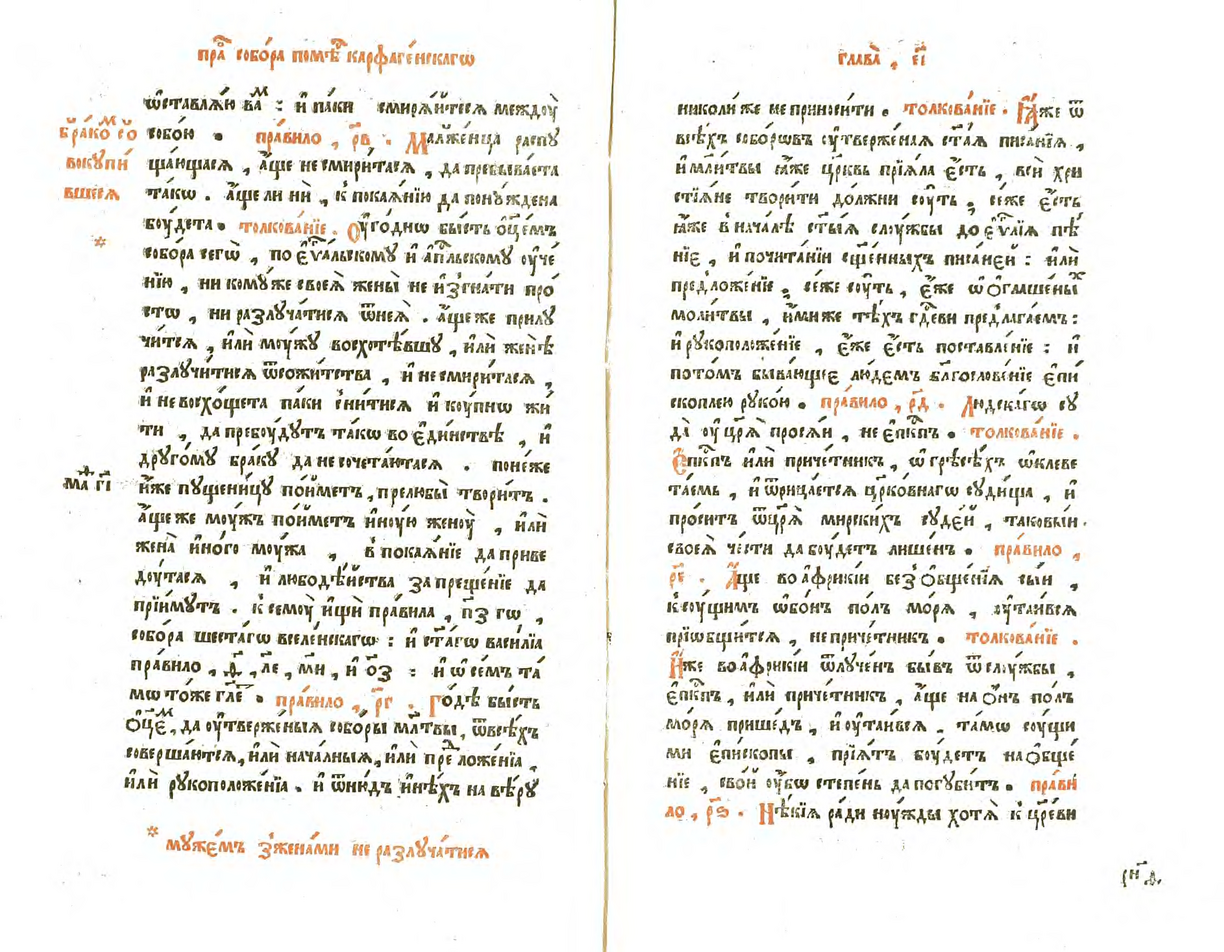 пра҇ собо́ра помѣ́ карфаге́нскагѡ
ѡ҆ставлѧ́ю ва́м : и҆ па́ки смирѧ́йтесѧ междоу̀
собо́ю • пра́вило , р҃в . Мал̾же́нца распꙋ
ща́ющасѧ , а҆́ще не смири́тасѧ , да пребыва́ета
та́кѡ . а҆́ще ли нѝ , к покаѧ́нїю да понꙋ́ждена
боу́дета • толкова́нїе . Оу҆го́днѡ бы́сть ѻ҆ц҃е́мъ
собо́ра сегѡ̀ , по є҆ѵⷢ҇а́льскомꙋ и҆ а҆п҇льскомꙋ оу҆че́
нїю , ни комꙋ́же своеѧ̀ жены̀ не и҆згна́ти про́
стѡ , ни разлꙋча́тисѧ ѿ неѧ̀ . а҆́ще же прилꙋ
чи́тсѧ , и҆лѝ моу́жꙋ восхотѣ́вшꙋ , и҆лѝ женѣ̀
разлꙋчи́тисѧ ѿ сожи́тества , и҆ не смири́тасѧ ,
и҆ не восхо́щета па́ки сни́тисѧ и҆ коу́пнѡ жи́
ти , да пребоу́дꙋтъ та́кѡ во є҆ди́нствѣ , и҆
дрꙋго́мꙋ бра́кꙋ да не сочета́ютасѧ . поне́же
и҆́же пꙋщени́цꙋ по́йметъ , прелюбы̀ твори́тъ .
а҆́ще же моу́жъ по́йметъ и҆ноу́ю женоу̀ , и҆лѝ
жена̀ и҆но́го моу́жа , в покаѧ́нїе да приве
доу́тасѧ , и҆ любодѣ́йства запреще́нїе да
прїи́мꙋтъ . к семоу̀ и҆щѝ пра́вила , п҃з гѡ ,
собо́ра шеста́гѡ вселе́нскагѡ : и҆ ст҃а́гѡ васи́лїа
пра́вило , д҃ , л҃е , м҃и , и҆ о҃з : и҆ ѡ҆ се́мъ та́
мѡ то́же гл҃е • пра́вило , р҃г . Го́дѣ бы́сть
ѻ҆ц҃е́м , да оу҆твержє́ныѧ собо́ры мл҃твы , ѿ всѣ́хъ
соверша́ютсѧ , и҆лѝ нача́лныѧ , и҆лѝ предложє́нїѧ ,
и҆лѝ рꙋкоположє́нїѧ . и҆ ѿню́дъ и҆нѣ́хъ на вѣ́рꙋ
бра́ком со
вокꙋпи́
вшесѧ
*
маⷴ г҃і
* мꙋжє́мъ з женами не разлꙋча́тисѧ
глава̀ , є҃і
николи́ же не приноси́ти • толкова́нїе . Ꙗ҆̀же ѿ
всѣ́хъ собо́рѡвъ оу҆твержє́наѧ ст҃а́ѧ писа́нїѧ ,
и҆ мл҃твы ꙗ҆́же цр҃квь прїѧ́ла є҆́сть , всѝ хри
стїѧ́не твори́ти до́лжни соу́ть , се́же є҆́сть
ꙗ҆́же в нача́лѣ ст҃ы́ѧ слоу́жбы до є҆ѵⷢ҇лїѧ пѣ́
нїе , и҆ почита́нїи сщ҃е́нныхъ писа́нєи : и҆лѝ
предложе́нїе , се́же соу́ть , є҆́же ѡ҆ ѻ҆глаше́ныхⷯ
моли́твы , и҆́миже тѣ́хъ гд҇еви предлага́емъ :
и҆ рꙋкоположе́нїе , є҆́же є҆́сть поставле́нїе : и҆
пото́мъ быва́ющеє лю́демъ бл҃гослове́нїе є҆пи́
скоплею рꙋко́ю • пра́вило , р҃д . Людска́гѡ сꙋ
да̀ оу҆ цр҃ѧ̀ просѧ́й , не є҆п҇кпъ • толкова́нїе .
Є҆п҇кпъ и҆лѝ приче́тникъ , ѡ҆ грѣсѣ́хъ ѡ҆клеве
та́емъ , и҆ ѿрица́етсѧ цр҃ко́внагѡ сꙋди́ща , и҆
про́ситъ ѿ цр҃ѧ̀ мирски́хъ сꙋде́й , таковы́и .
своеѧ̀ че́сти да боу́детъ лише́нъ • пра́вило ,
р҃е . А҆́ще во а҆фри́кїи без̾ ѻ҆бще́нїѧ сы́и ,
к соу́щимъ ѡ҆бо́нъ по́лъ мо́рѧ , оу҆таи́всѧ
прїѡбщи́тсѧ , не приче́тникъ • толкова́нїе .
И҆̀же во а҆фри́кїи ѿлꙋче́нъ бы́въ ѿ слꙋ́жбы ,
є҆п҇кпъ , и҆лѝ приче́тникъ , а҆́ще на ѻ҆́нъ по́лъ
мо́рѧ прише́дъ , и҆ оу҆таи́всѧ , та́мѡ соу́щи
ми є҆пи́скопы , прїѧ́тъ боу́детъ на ѻ҆бще́
нїе , сво́й оу҆́бѡ сте́пень да погꙋби́тъ • пра́ви
ло , р҃ѕ . Нѣ́кїѧ ра́ди ноу́жды хотѧ̀ к цр҃еви